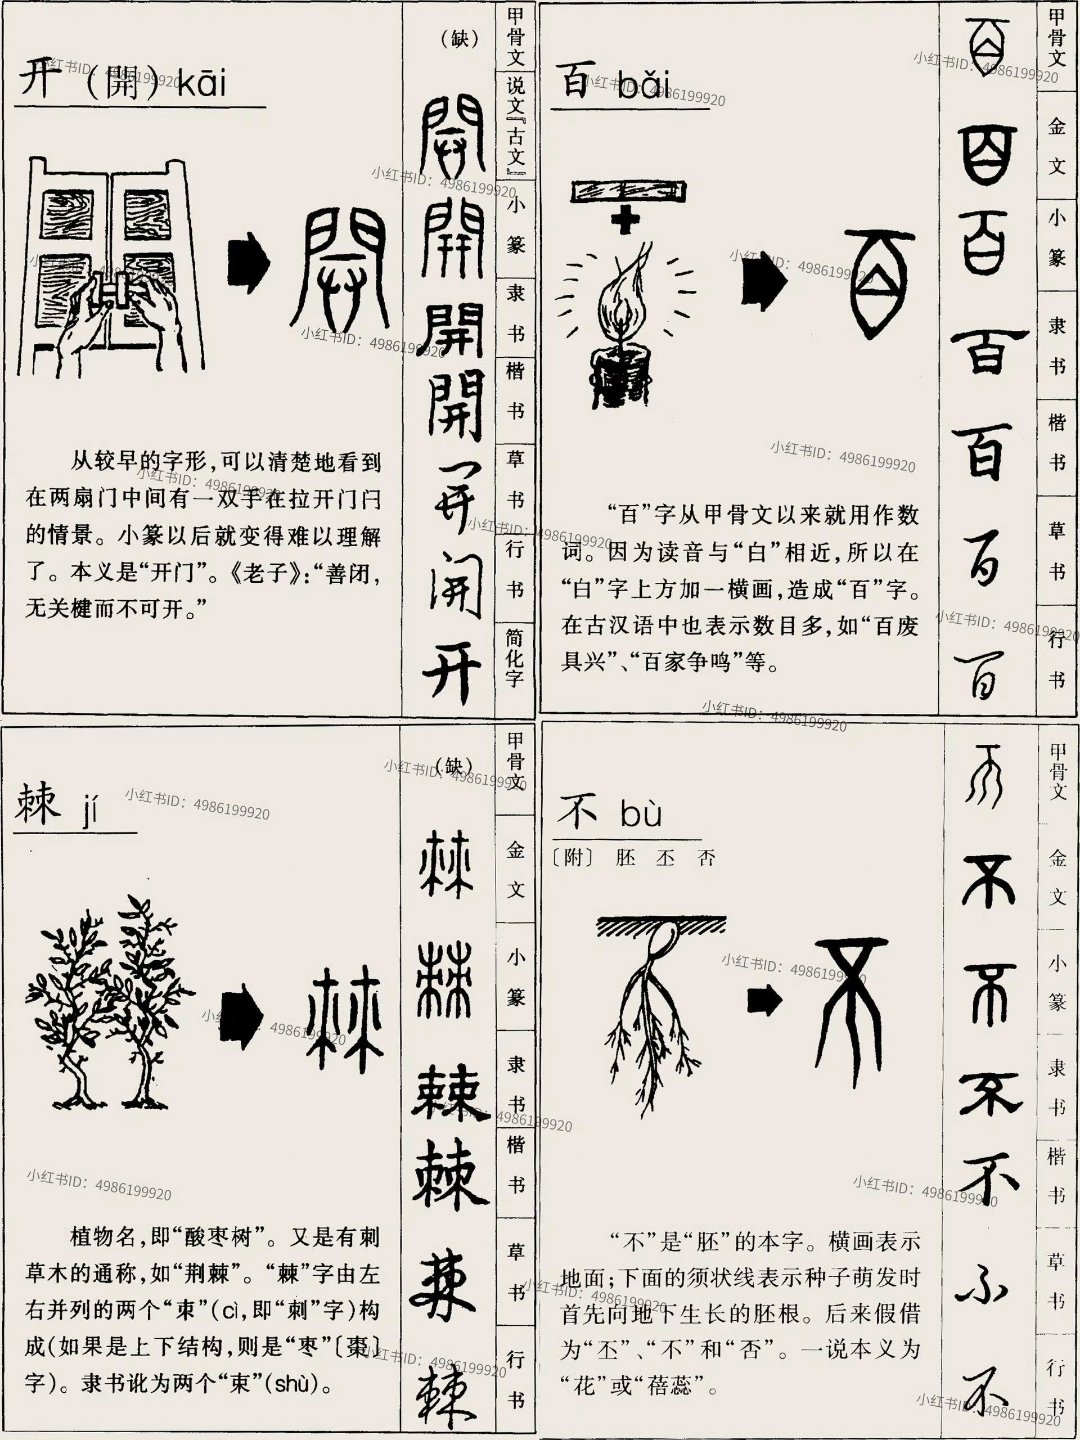 开（開）kāi
从较早的字形，可以清楚地看到
在两扇门中间有一双手在拉开门闩
的情景。小篆以后就变得难以理解
了。本义是“开门”。《老子》：“善闭，
无关楗而不可开。”
（缺）
開
開
开
甲骨文
说文『古文』
小篆
隶书
楷书
草书
行书
简化字
百 bǎi
“百”字从甲骨文以来就用作数
词。因为读音与“白”相近，所以在
“白”字上方加一横画，造成“百”字。
在古汉语中也表示数目多，如“百废
具兴”、“百家争鸣”等。
百
百
甲骨文
金文
小篆
隶书
楷书
草书
行书
棘 jí
植物名，即“酸枣树”。又是有刺
草木的通称，如“荆棘”。“棘”字由左
右并列的两个“朿”（cì，即“刺”字）构
成（如果是上下结构，则是“枣”〔棗〕
字）。隶书讹为两个“束”（shù）。
（缺）
棘
棘
甲骨文
金文
小篆
隶书
楷书
草书
行书
不 bù
〔附〕 胚 丕 否
“不”是“胚”的本字。横画表示
地面；下面的须状线表示种子萌发时
首先向地下生长的胚根。后来假借
为“丕”、“不”和“否”。一说本义为
“花”或“蓓蕊”。
不
不
甲骨文
金文
小篆
隶书
楷书
草书
行书
小红书ID：4986199920